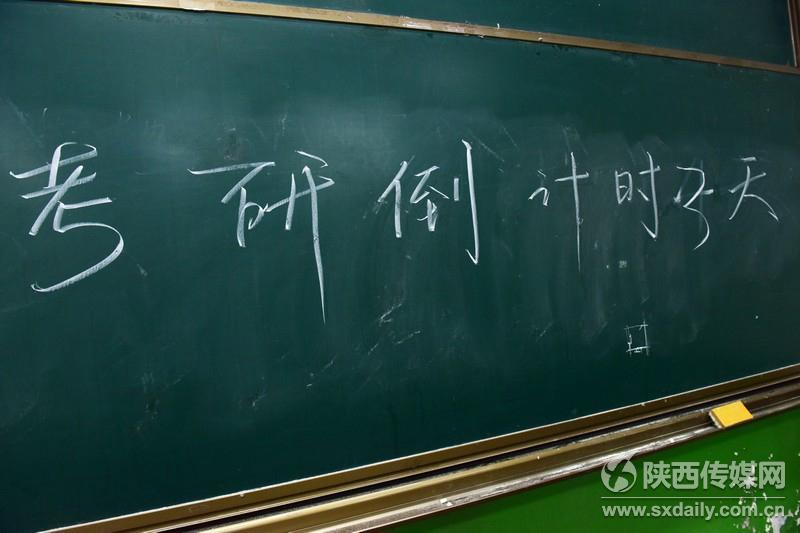 考研倒计时 天
陕西传媒网
www.sxdaily.com.cn